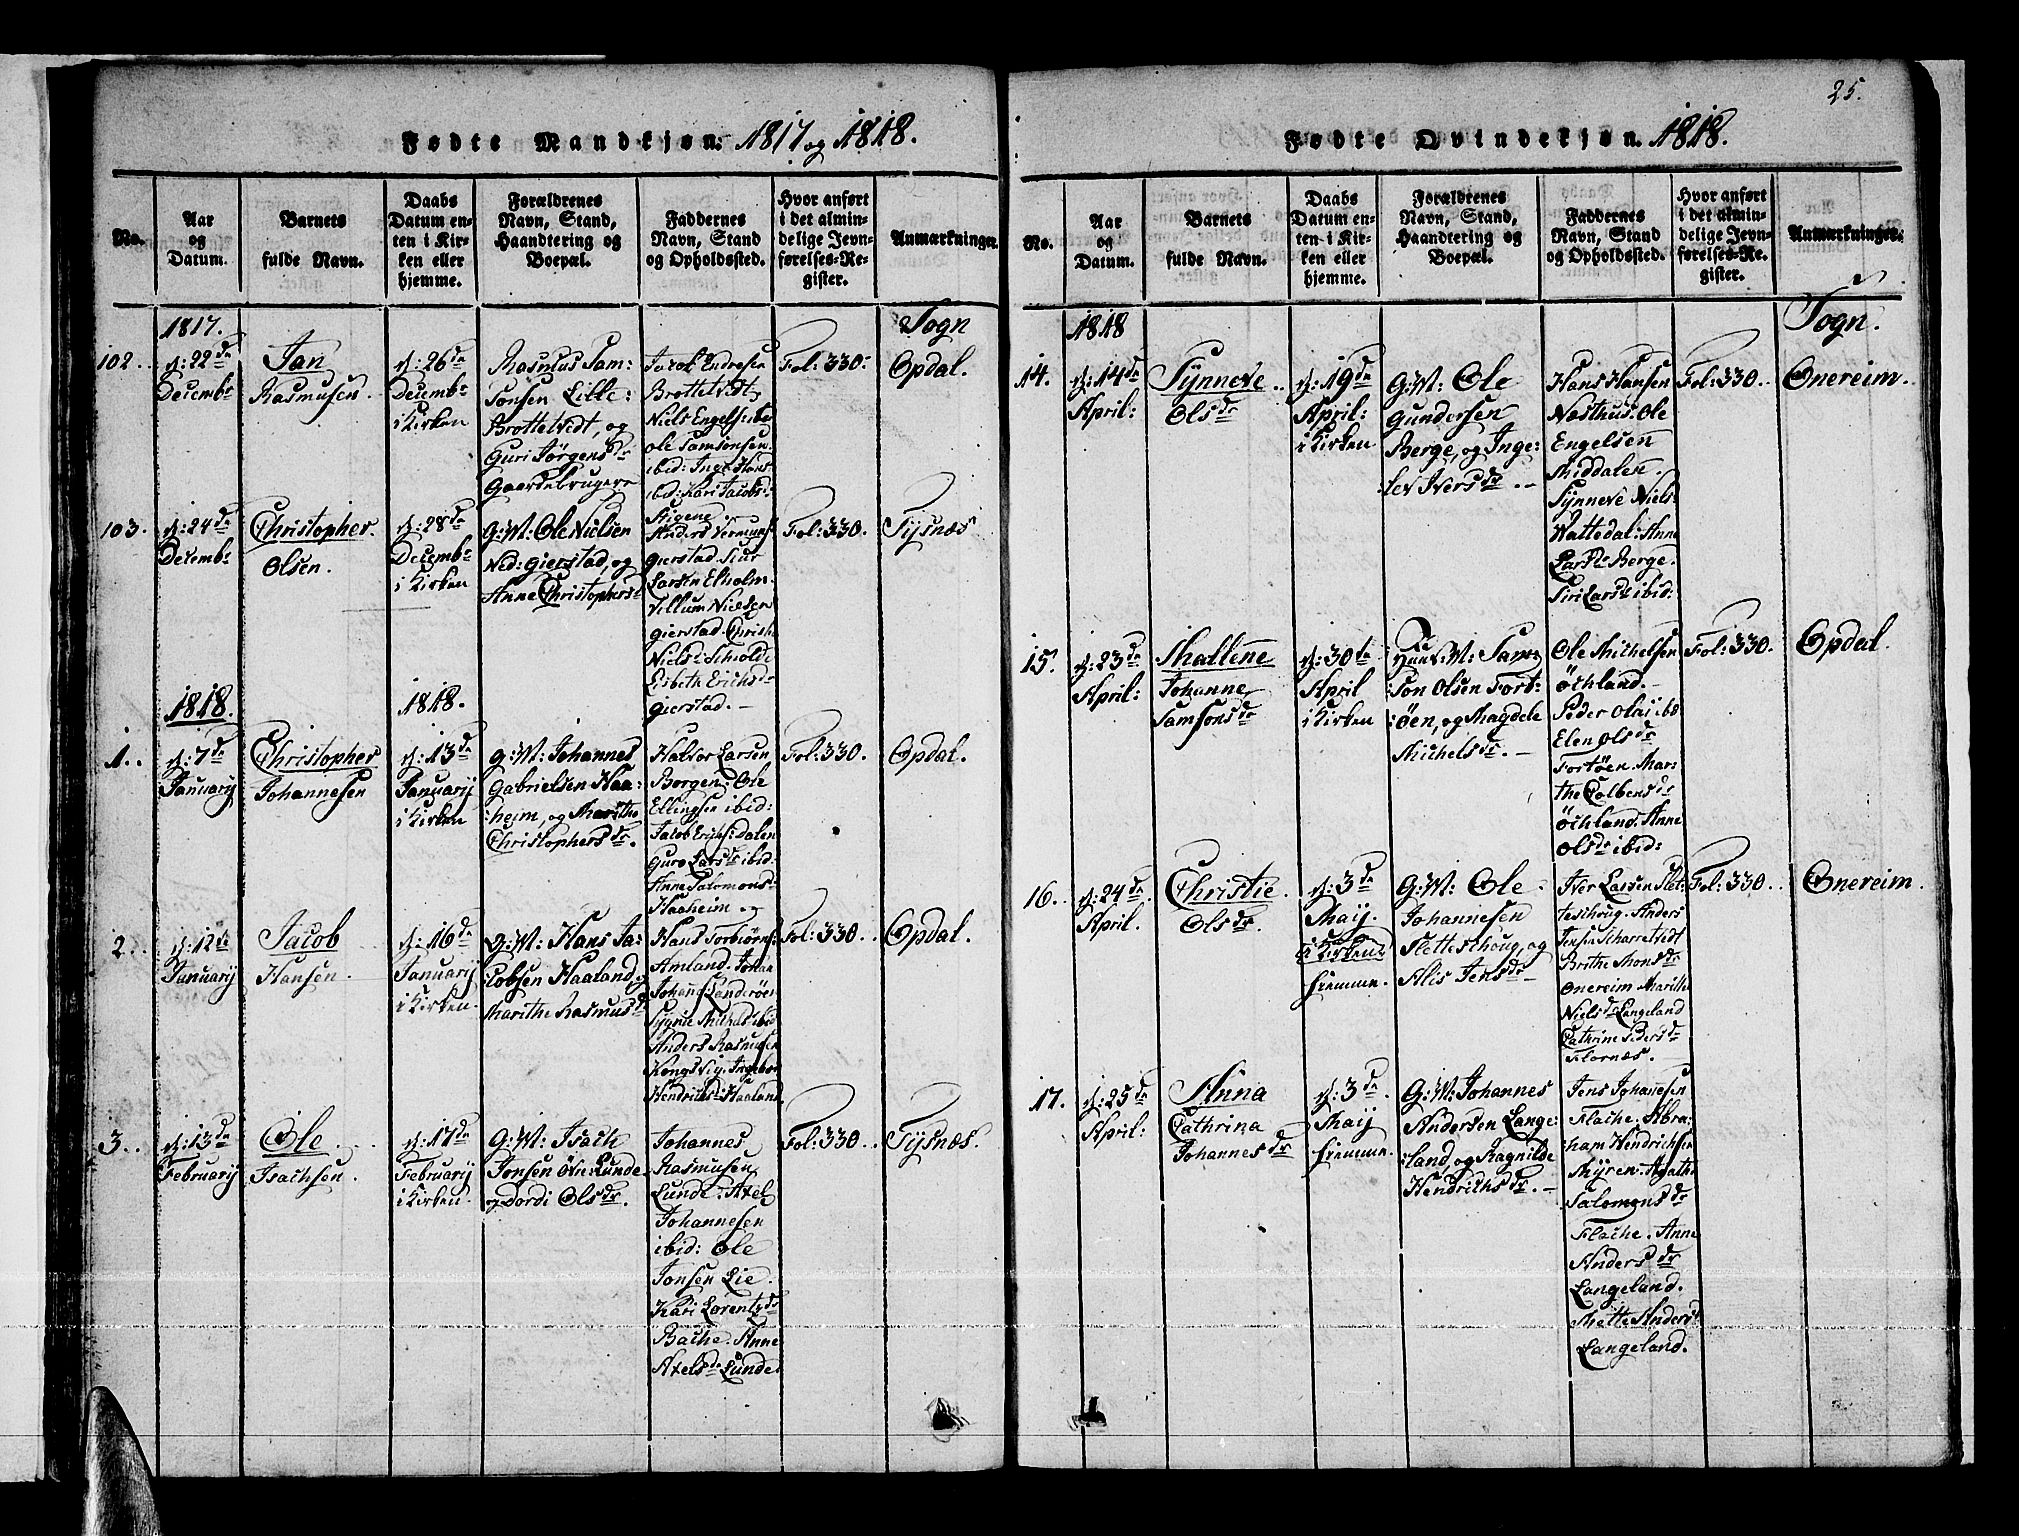 Fødte Mandkjøn. 1817 og 1818.
No.
Aar
og
Datum.
Barnets
fulde Navn.
Daabs
Datum en-
ten i Kir-
ken eller
hjemme.
Forældrenes
Navn, Stand,
Haandtering og
Boepæl.
Faddernes
Navn, Stand
og Opholdssted.
Hvor anført
i det almin-
delige Jevn-
førelses-Re-
gister.
Anmærkninger.
1817.
Sogn
102.
d: 22de
Decembr
Jan
Rasmusen.
d: 26de
Decembr
i Kirken
Rasmus Sam:
sonsen Lille:
Brottetvedt, og
Guri Jørgensdr
Gaardebrugere
Jacob Endresen
Brottetvedt,
Niels Engels: ibid
Ole Samsonsen
ibid: Inge Hans
ibid: Kari Jacobs:
Fol: 330.
Opdal.
103.
d: 24de
Decembr
Christopher
Olsen.
d: 28de
Decembr
i Kirken
G:M: Ole Nielsen
Ned: gierstad, og
Anne Christophersd
Anders
gierstad.
Larsen Elholm.
Villum Nielsen
gierstad.
Niels:
Lisbeth Erichsdr
gierstad. —
Fol: 330.
Tysnæs
1818.
1818.
1.
d: 7de
Januarij
Christopher
Johannesen
d: 13de
Januarij
i Kirken
G:M: Johannes
Gabrielsen Haa:
:heim, og Marithe
Christophersdr.
Halvor Larsen
Borgen: Ole
Ellingsen ibid:
Jacob Erichs: Dalen
Guro Larsdr ibid:
Anne Salomonsd
Haaheim
Fol: 330.
Opdal.
2.
d: 12te
Januarij
Jacob
Hansen.
d: 16de
Januarij
i Kirken.
G:M: Hans Ja:
:cobsen Haaland, og
Marithe Rasmusd
Hans Torbiørns
Amland. Johan
Johans: Sanderøen
Anders Rasmusen
Kongsvig. Ingebor
Hendrichsd: Haaland.
Fol: 330.
Opdal.
3.
d: 13de
Februarij
Ole
Isachsen.
d: 17de
Februarij
i Kirken.
G:M: Isach
Jonsen Øvre: Lunde
og Dordi Olsdr.
Johannes
Rasmusen
Lunde. Axel
Johannesen
ibid: Ole
Jonsen Lie.
Kari Lorentzdr
Bache. Anne
Axelsdr Lunde
Fol: 330.
Tysnæs.
25.
Fødte Qvindekjøn. 1818.
No.
Aar
og
Datum.
Barnets
fulde Navn.
Daabs
Datum en-
ten i Kir-
ken eller
hjemme.
Forældrenes
Navn, Stand,
Haandtering og
Boepæl.
Faddernes
Navn, Stand
og Opholdssted.
Hvor anført
i det almin-
delige Jevn-
førelses-Re-
gister.
Anmærkninger.
1818
Sogn.
14.
d: 14de
April:
Synneve
Olsdr
d: 19de
April:
i Kirken
G:M: Ole
Gundersen
Berge, og Inge:
lev Iversdr. —
Hans Hansen
Næsthus: Ole
Engelsen
Middalen.
Synneve Niels
Wattedal: Anne
Larsdr Berge.
Siri Larsd ibid:
Fol: 330.
Onereim.
15.
d: 23de
April:
Mallene
Johanne
Samsonsdr
d: 30te
April
i Kirken
M: Sam
son Olsen Fort:
:øen, og Magdele
Michelsdr. —
Ole Michelsen
Øchland. —
Peder Olai ibid
Elen Olsdr
Fortøen. Mar:
the Colbensdr
Øchland. Anne
Olsdr ibid:
Fol: 330.
Opdal.
16.
d: 24de
April.
Christie
Olsdr.
d: 3de
Maij.
i Kirken
hiemme.
G:M: Ole
Johannesen
Sletteschoug, og
Alis Jensdr —
Iver Larsen Slet:
teschoug. Anders
Jensen Scharretvedt
Brithe Monsdr
Onereim. Marithe
Nielsd Langeland
Cathrine Pedersdr
Flornæs. —
Fol: 330.
Onereim.
17.
d: 25de
April:
Anna
Cathrina
Johannesdr
d: 3de
Maij
hiemme.
G:M: Johannes
Andersen Lange:
:land, og Ragnilde
Hendrichsdr. —
Jens Johannesen
Flache. Abra:
ham Hendrichsen
Myren. Agathe
Salomonsdr
Flache. Anne
Andersdr
Langeland.
Mette Andersd
Langeland.